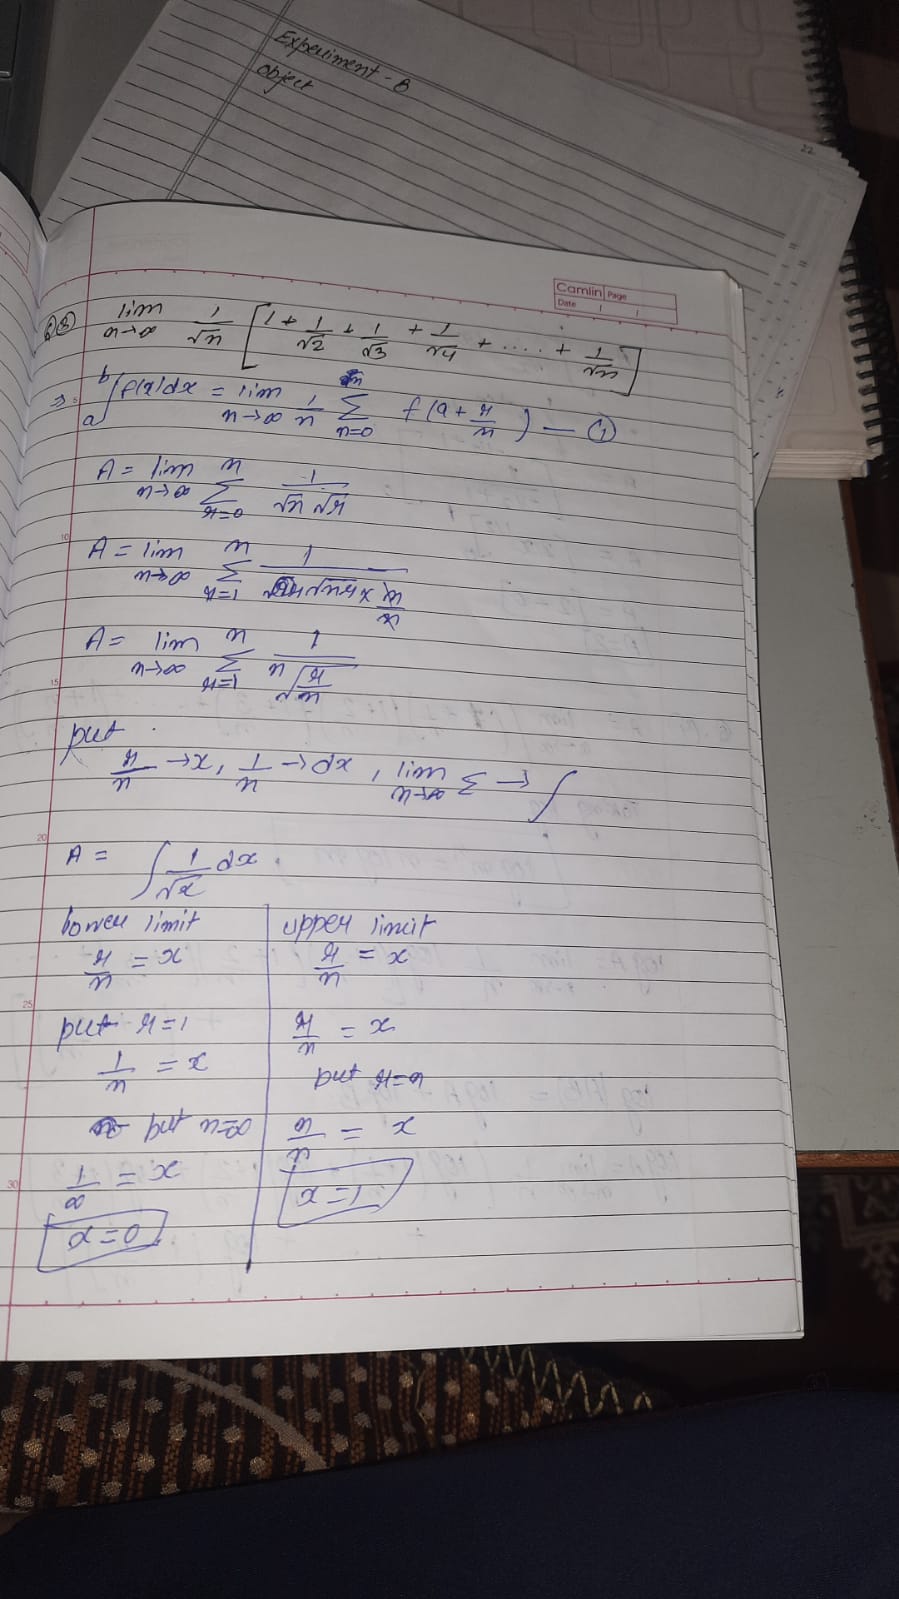 Experiment - B
Object
22
Camlin Page
Date / /
Q3 lim n→∞ 1/√n [1 + 1/√2 + 1/√3 + 1/√4 + .... + 1/√n]
⇒ a∫b f(x)dx = lim n→∞ 1/n Σ n=0 f(a + r/n) — ①
A = lim n→∞ Σ r=0 n 1/√n √r
A = lim n→∞ Σ r=1 n
A = lim n→∞ Σ r=1 n 1/n√(r/n)
put
r/n → x, 1/n → dx, lim n→∞ Σ → ∫
A = ∫ 1/√x dx.
lower limit
r/n = x
put r=1
1/n = x
put n=∞
1/∞ = x
x=0
upper limit
r/n = x
r/n = x
put r=n
n/n = x
x=1
5
10
15
20
25
30